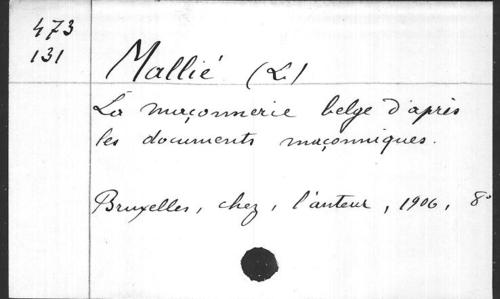 473
131
Mallié (L.)
La maçonnerie belge d'après
les documents maçonniques.
Bruxelles, chez, l'auteur, 1906, 8°